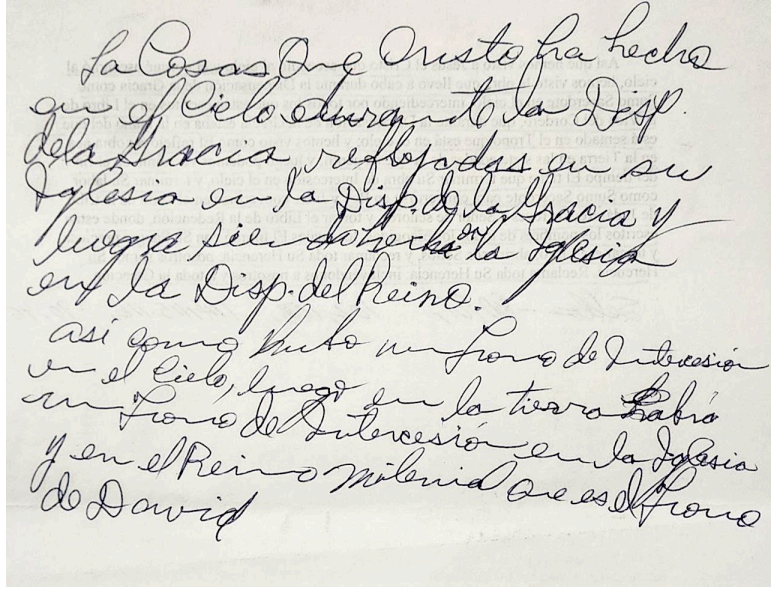 La Cosas Que Cristo ha hecho
en el Cielo durante la Disp.
de la Gracia, reflejadas en su
Iglesia en la Disp. de la Gracia y
luego siendo hecha en la Iglesia
en la Disp. del Reino.
así como hubo un Trono de Intercesión
en el Cielo, luego en la tierra habrá
un Trono de Intercesión en la Iglesia
y en el Reino Milenial que es el Trono
de David